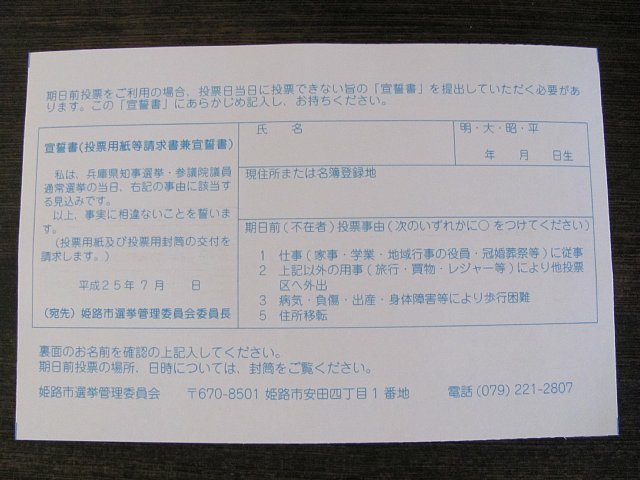 期日前投票をご利用の場合、投票日当日に投票できない旨の「宣誓書」を提出していただく必要があ
ります。この「宣誓書」にあらかじめ記入し、お持ちください。
宣誓書(投票用紙等請求書兼宣誓書)
私は、兵庫県知事選挙・参議院議員
通常選挙の当日、右記の事由に該当す
る見込みです。
以上、事実に相違ないことを誓いま
す。
(投票用紙及び投票用封筒の交付を
請求します。)
平成25年7月　　日
(宛先) 姫路市選挙管理委員会委員長
氏　名
明・大・昭・平
年　月　日生
現住所または名簿登録地
期日前(不在者)投票事由(次のいずれかに○をつけてください)
1 仕事(家事・学業・地域行事の役員・冠婚葬祭等)に従事
2 上記以外の用事(旅行・買物・レジャー等)により他投票
区へ外出
3 病気・負傷・出産・身体障害等により歩行困難
5 住所移転
裏面のお名前を確認の上記入してください。
期日前投票の場所、日時については、封筒をご覧ください。
姫路市選挙管理委員会　〒670-8501 姫路市安田四丁目1番地　電話(079)221-2807